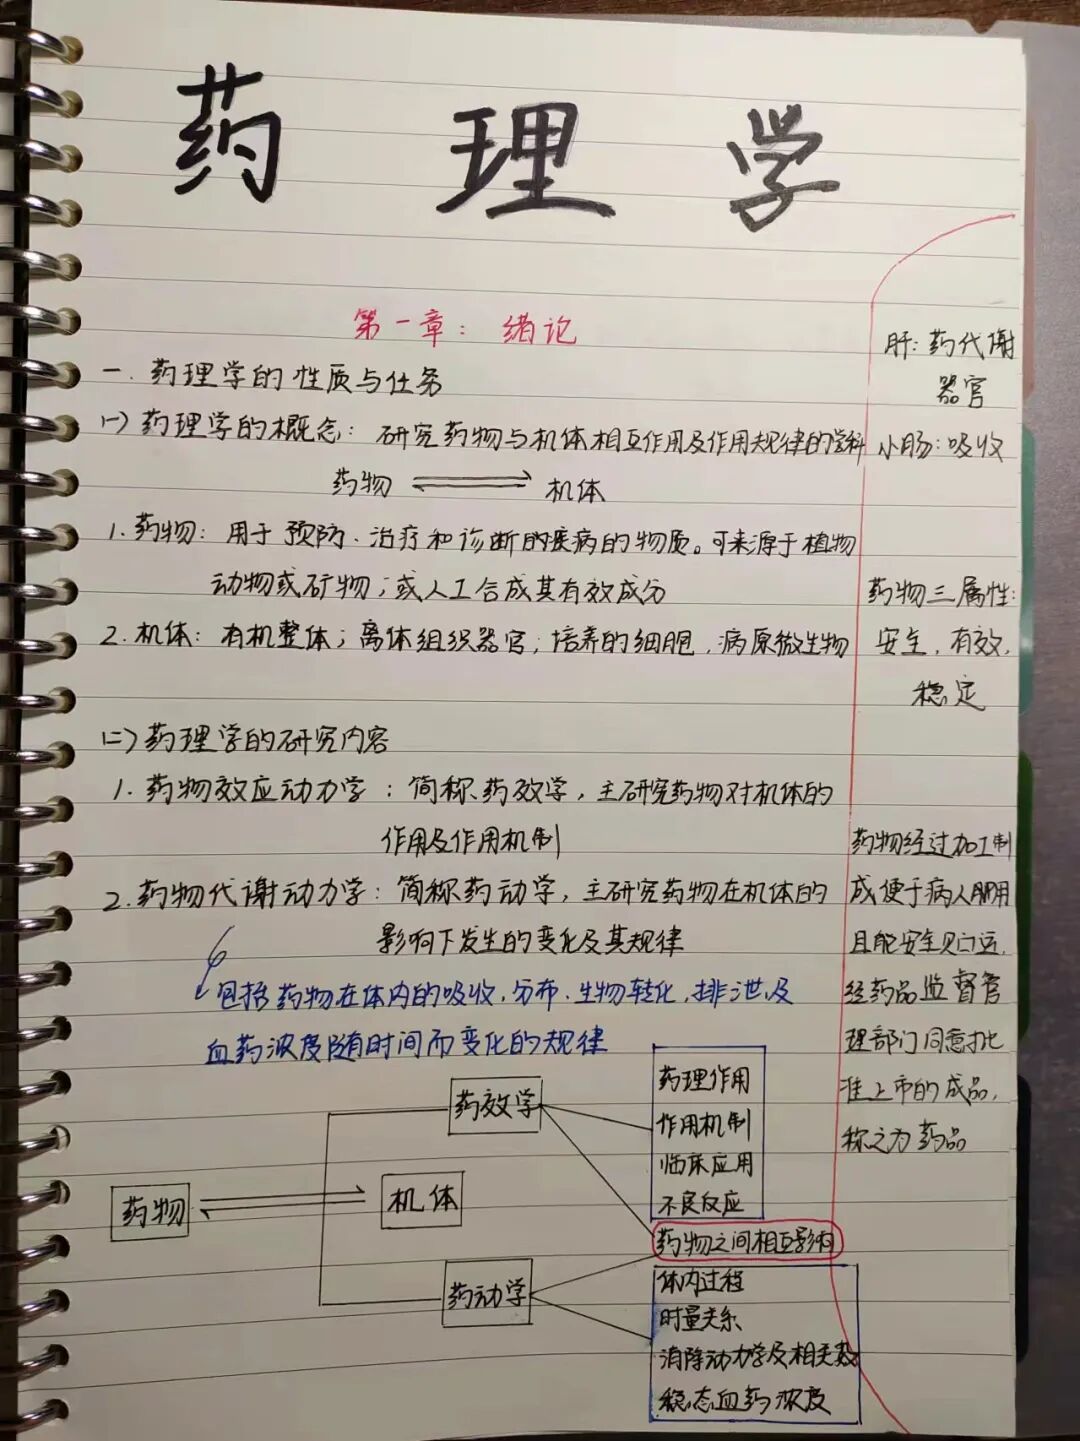 药理学
第一章：绪论
一.药理学的性质与任务
(一)药理学的概念：研究药物与机体相互作用及作用规律的学科
药物 ⇌ 机体
1.药物：用于预防.治疗和诊断的疾病的物质。可来源于植物
动物或矿物；或人工合成其有效成分
2.机体：有机整体；离体组织器官；培养的细胞.病原微生物
(二)药理学的研究内容
1.药物效应动力学：简称药效学，主研究药物对机体的
作用及作用机制
2.药物代谢动力学：简称药动学，主研究药物在机体的
影响下发生的变化及其规律
包括药物在体内的吸收.分布.生物转化.排泄及
血药浓度随时间而变化的规律
药物 ⇌ 机体
药效学
药理作用
作用机制
临床应用
不良反应
药物之间相互影响
药动学
体内过程
时量关系
消除动力学及相关数
稳态血药浓度
肝：药代谢
器官
小肠：吸收
药物三属性：
安全，有效，
稳定
药物经过加工制
成便于病人服用
且能安全贮运，
经药品监督管
理部门同意批
准上市的成品，
称之为药品